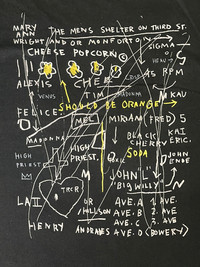 MARY
ANN
THE MENS SHELTER ON THIRD ST.
WRIGHT AND OR MONFORTON
CHEESE POPCORN
SIGMA
ALEXIS
CHER
45 RPM
VENUS
TIM
MADONNA
KAU
SHOULD BE ORANGE
FELICE
MEL
MIRIAM (FRED) 5
MADONNA
BLACK
CHERRY
SODA
KAI
ERIC.
HIGH
PRIEST.
HIGH
PRIEST
JOHN
ENDE
JOHN
"BIG WILLY"
TKCR
LA II
OR
AVE. A 1 AVE.
AVE. B 2 AVE
AVE. C 3 AVE.
AVE. D (BOWERY)
HENRY
AND RAMES